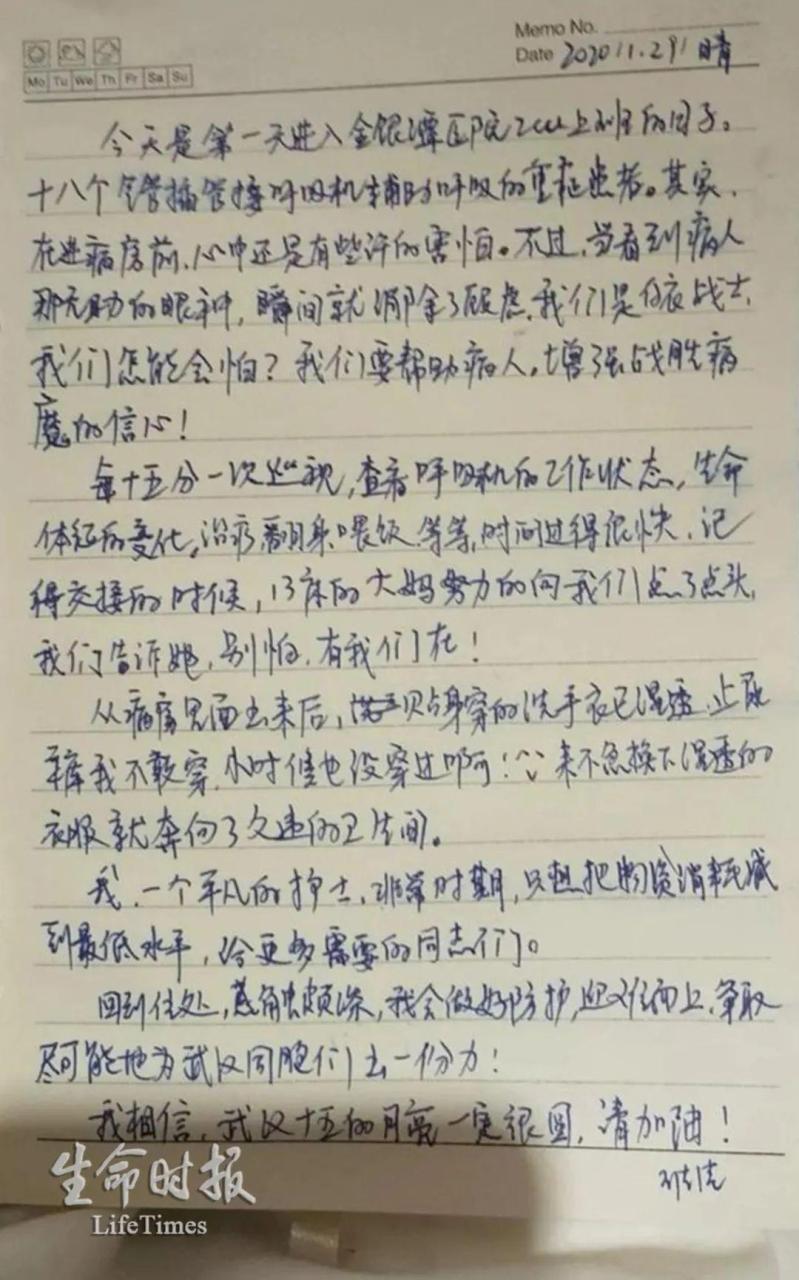 Memo No.
Mo Tu We Th Fr Sa Su
Date 2020.1.29 晴
今天是第一天进入金银潭医院Icu上班的日子。
十八个气管插管接呼吸机辅助呼吸的重症患者。其实、
在进病房前、心中还是有些许的害怕。不过、当看到病人
那无助的眼神，瞬间就消除了顾虑、我们是白衣战士、
我们怎能会怕？我们要帮助病人。增强战胜病
魔的信心！
每十五分一次巡视，查看呼吸机的工作状态，生命
体征的变化，治疗翻身喂饭等等，时间过得很快、记
得交接的时候，13床的大妈努力的向我们点了点头，
我们告诉她、别怕、有我们在！
从病房里面出来后，贴身穿的洗手衣已湿透、止尿
裤我不敢穿、小时候也没穿过啊！来不急换下湿透的
衣服就奔向了久违的卫生间。
我、一个平凡的护士、非常时期，只想把物资消耗减
到最低水平，给更多需要的同志们。
回到住处，感触颇深，我会做好防护，迎难而上、争取
尽可能地为武汉同胞们出一份力！
我相信，武汉十五的月亮一定很圆，请加油！
生命时报
LifeTimes